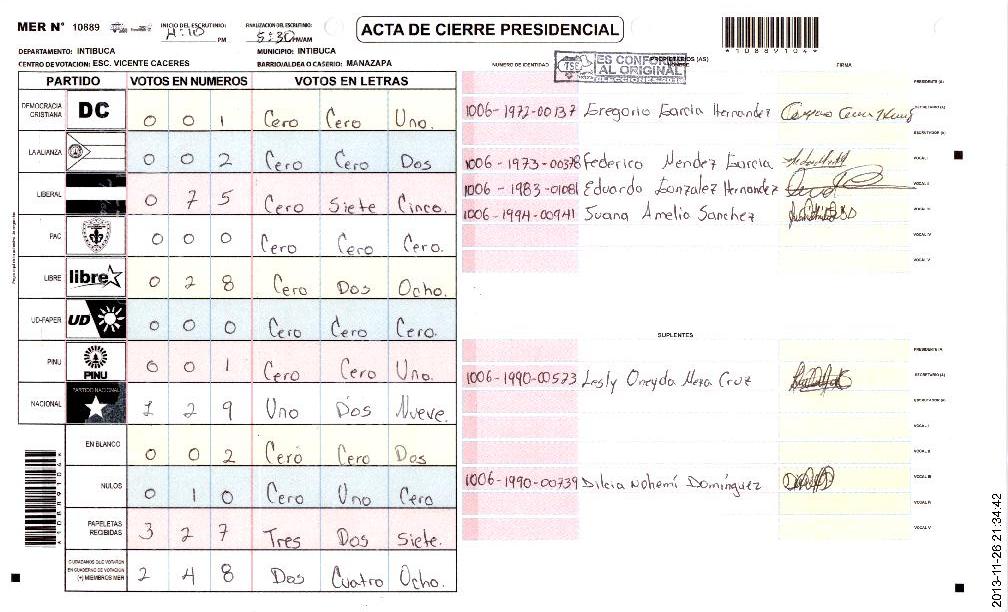 MER N° 10889
INICIO DEL ESCRUTINIO: 4:10 PM
FINALIZACION DEL ESCRUTINIO: 5:30 PM/AM
ACTA DE CIERRE PRESIDENCIAL
*10889104*
DEPARTAMENTO: INTIBUCA
MUNICIPIO: INTIBUCA
CENTRO DE VOTACION: ESC. VICENTE CACERES
BARRIO/ALDEA O CASERIO: MANAZAPA
TSE ES CONFORME AL ORIGINAL
PARTIDO VOTOS EN NUMEROS VOTOS EN LETRAS
DEMOCRACIA CRISTIANA DC 0 0 1 Cero Cero Uno.
LA ALIANZA 0 0 2 Cero Cero Dos
LIBERAL 0 7 5 Cero Siete Cinco.
PAC 0 0 0 Cero Cero Cero.
LIBRE libre 0 2 8 Cero Dos Ocho.
UD-FAPER UD 0 0 0 Cero Cero Cero.
PINU PINU 0 0 1 Cero Cero Uno.
NACIONAL PARTIDO NACIONAL 1 2 9 Uno Dos Nueve.
EN BLANCO 0 0 2 Cero Cero Dos
NULOS 0 1 0 Cero Uno Cero
PAPELETAS RECIBIDAS 3 2 7 Tres Dos Siete.
CIUDADANOS QUE VOTARON EN CUADERNO DE VOTACION (+) MIEMBROS MER 2 4 8 Dos Cuatro Ocho.
*10889104*
NUMERO DE IDENTIDAD PROPIETARIOS (AS) FIRMA
PRESIDENTE (A)
1006-1972-00137 Gregorio Garcia Hernandez SECRETARIO (A)
ESCRUTADOR (A)
1006-1973-00378 Federico Mendez Garcia VOCAL I
1006-1983-01081 Eduardo Gonzalez Hernandez VOCAL II
1006-1994-00941 Juana Amelia Sanchez VOCAL III
VOCAL IV
VOCAL V
SUPLENTES
PRESIDENTE (A)
1006-1990-00573 Lesly Oneyda Meza Cruz SECRETARIO (A)
ESCRUTADOR (A)
VOCAL I
VOCAL II
1006-1990-00739 Dilcia Nohemí Domínguez VOCAL III
VOCAL IV
VOCAL V
2013-11-26 21:34:42